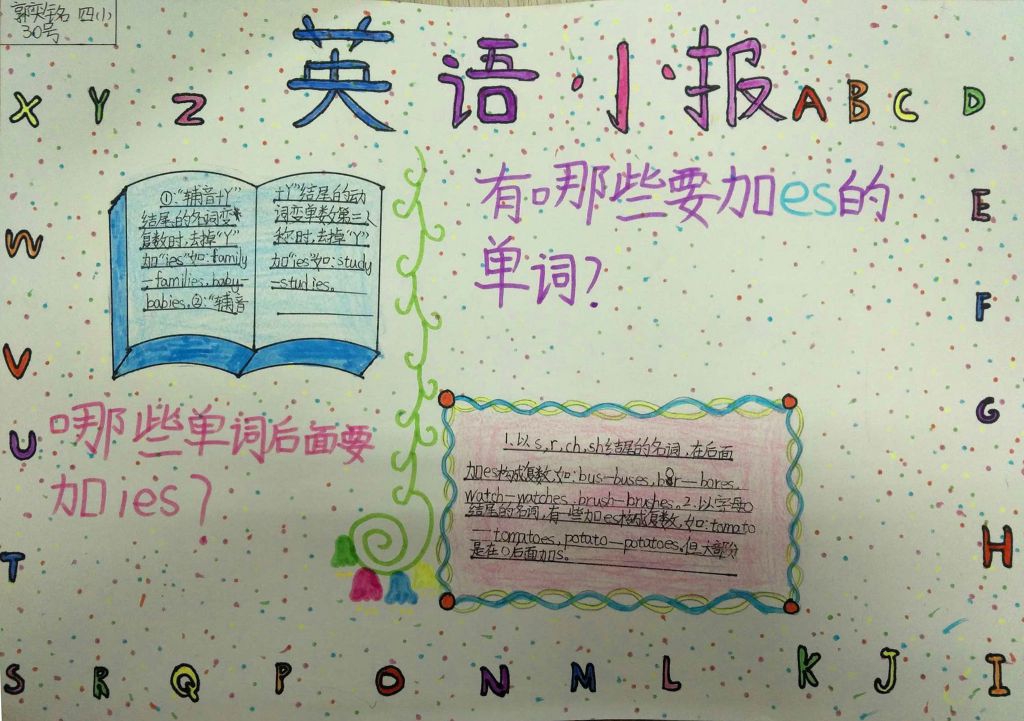 郭奕铭 四(1)
30号
英语·小·报
X Y Z
A B C D
E
F
G
H
I
J
K
L
M
N
O
P
Q
R
S
T
U
V
W
①:“辅音+Y”
结尾的名词变
复数时,去掉“Y”
加“ies”如:family
—families,baby—
babies.②:“辅音
+Y”结尾的动
词变单数第三人
称时,去掉“Y”
加“ies”如:study
—studies。
有哪些要加es的
单词?
哪些单词后面要
加ies?
1.以s,r,ch,sh结尾的名词,在后面
加es构成复数,如:bus—buses, — bores.
watch—watches,brush—brushes。2.以字母O
结尾的名词,有一些加es构成复数,如:tomato
—tomatoes,potato—potatoes。但大部分
是在O后面加s。